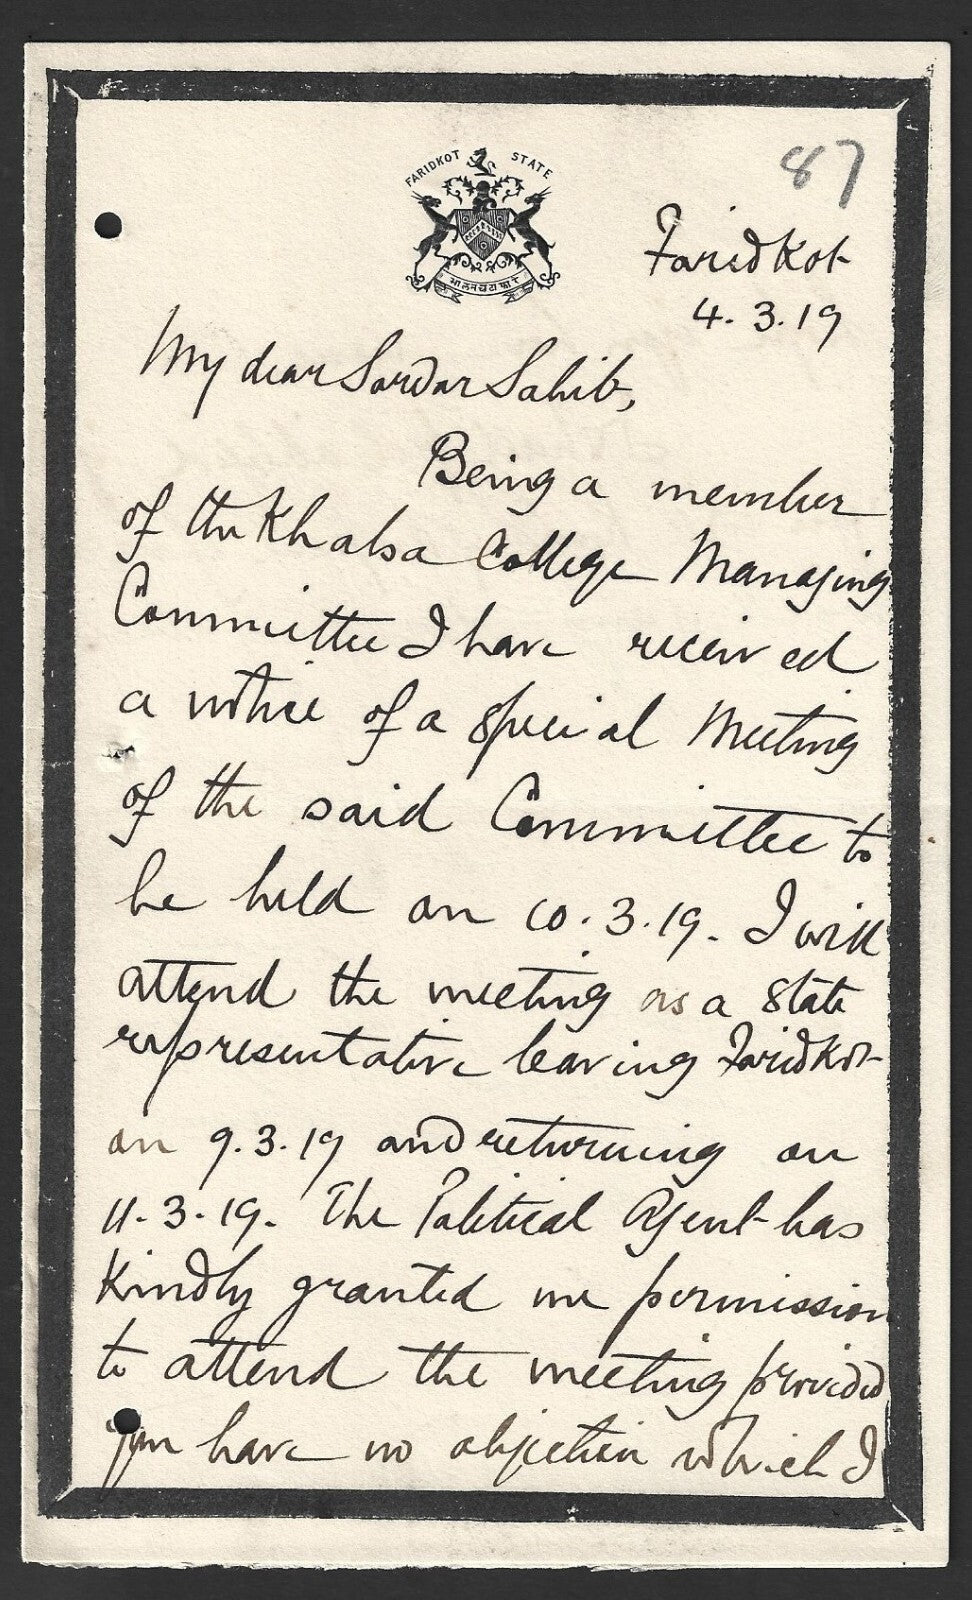 FARIDKOT STATE
87
Faridkot
4.3.19
My dear Sardar Sahib,
Being a member
of the Khalsa College Managing
Committee I have received
a notice of a special Meeting
of the said Committee to
be held on 10.3.19. I will
attend the meeting as a State
representative leaving Faridkot
on 9.3.19 and returning on
11.3.19. The Political Agent has
kindly granted me permission
to attend the meeting provided
you have no objection which I